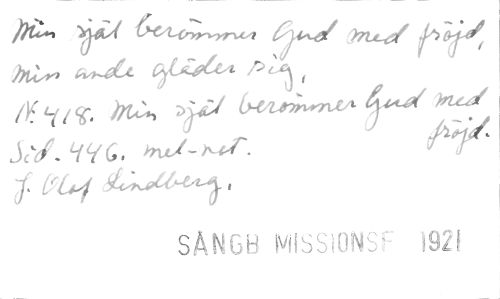 Min själ berömmer Gud med fröjd,
min ande gläder sig,
N: 418. Min själ berömmer Gud med
fröjd.
Sid. 446. mel-not.
J. Olof Lindberg.
SÅNGB MISSIONSF 1921